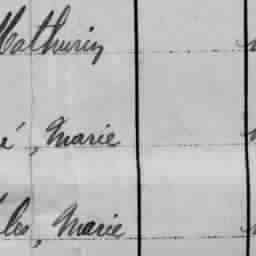 Mathurin
é, Marie
les, Marie